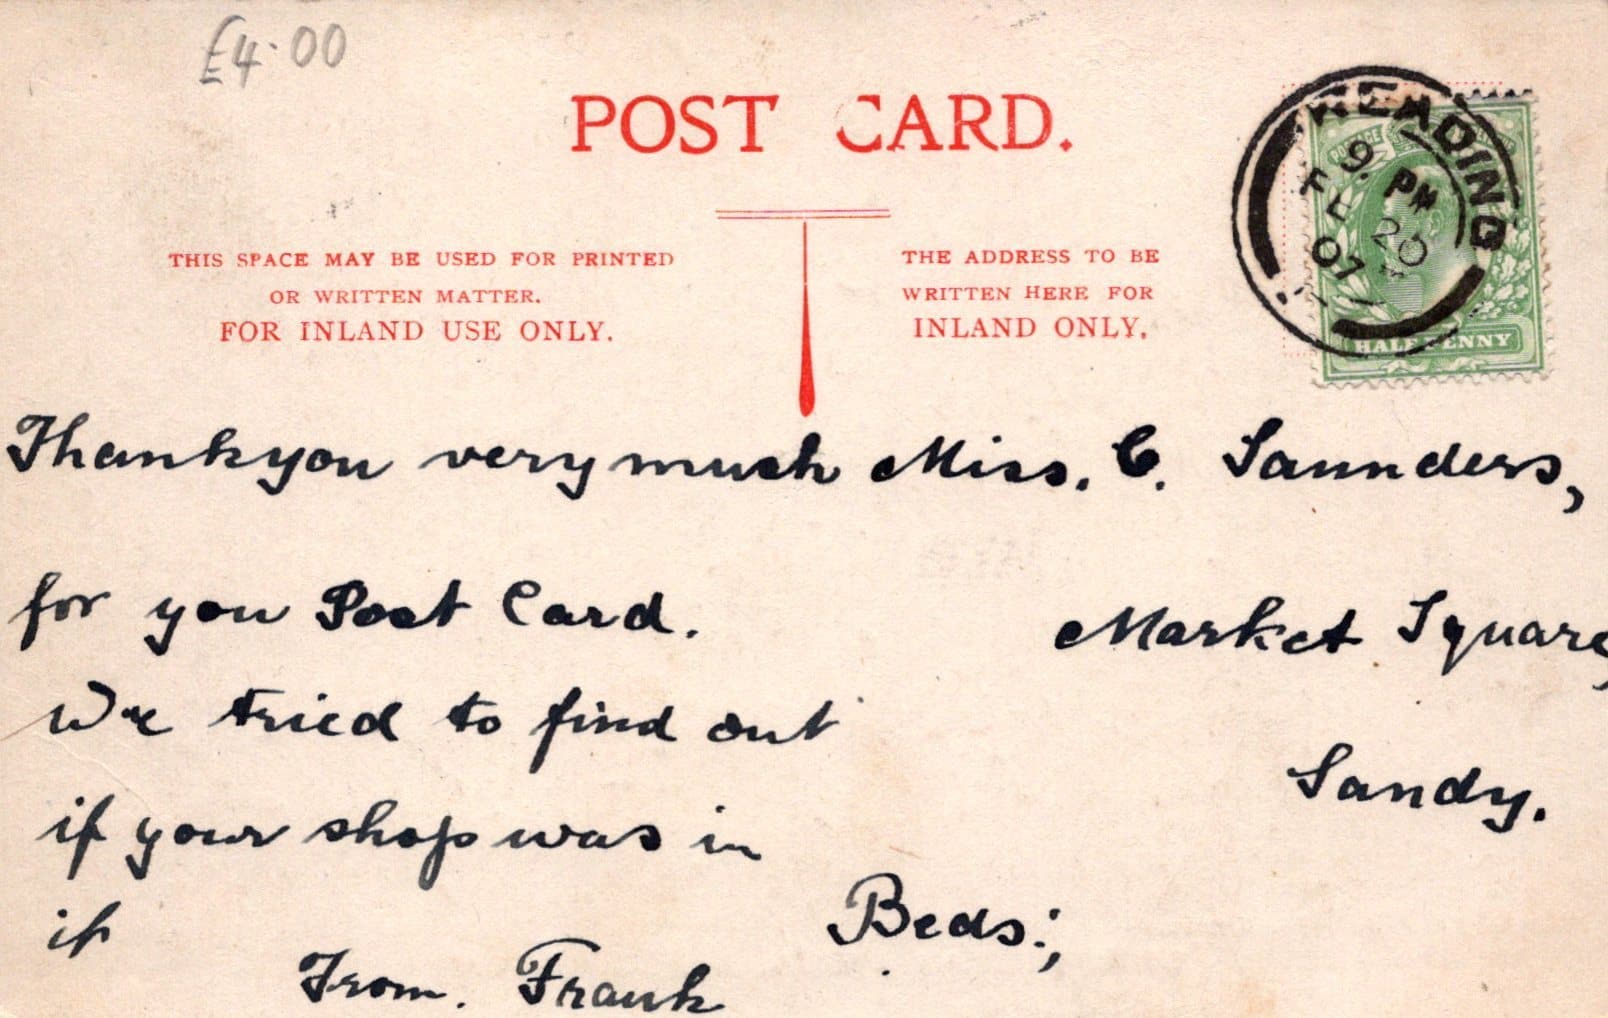 £4.00
POST CARD.
THIS SPACE MAY BE USED FOR PRINTED
OR WRITTEN MATTER.
FOR INLAND USE ONLY.
THE ADDRESS TO BE
WRITTEN HERE FOR
INLAND ONLY.
READING
9. PM
FE 20
07
POSTAGE
HALFPENNY
Thankyou very much
for you Post Card.
We tried to find out
if your shop was in
it
From. Frank
Miss. C. Saunders,
Market Square,
Sandy.
Beds:,